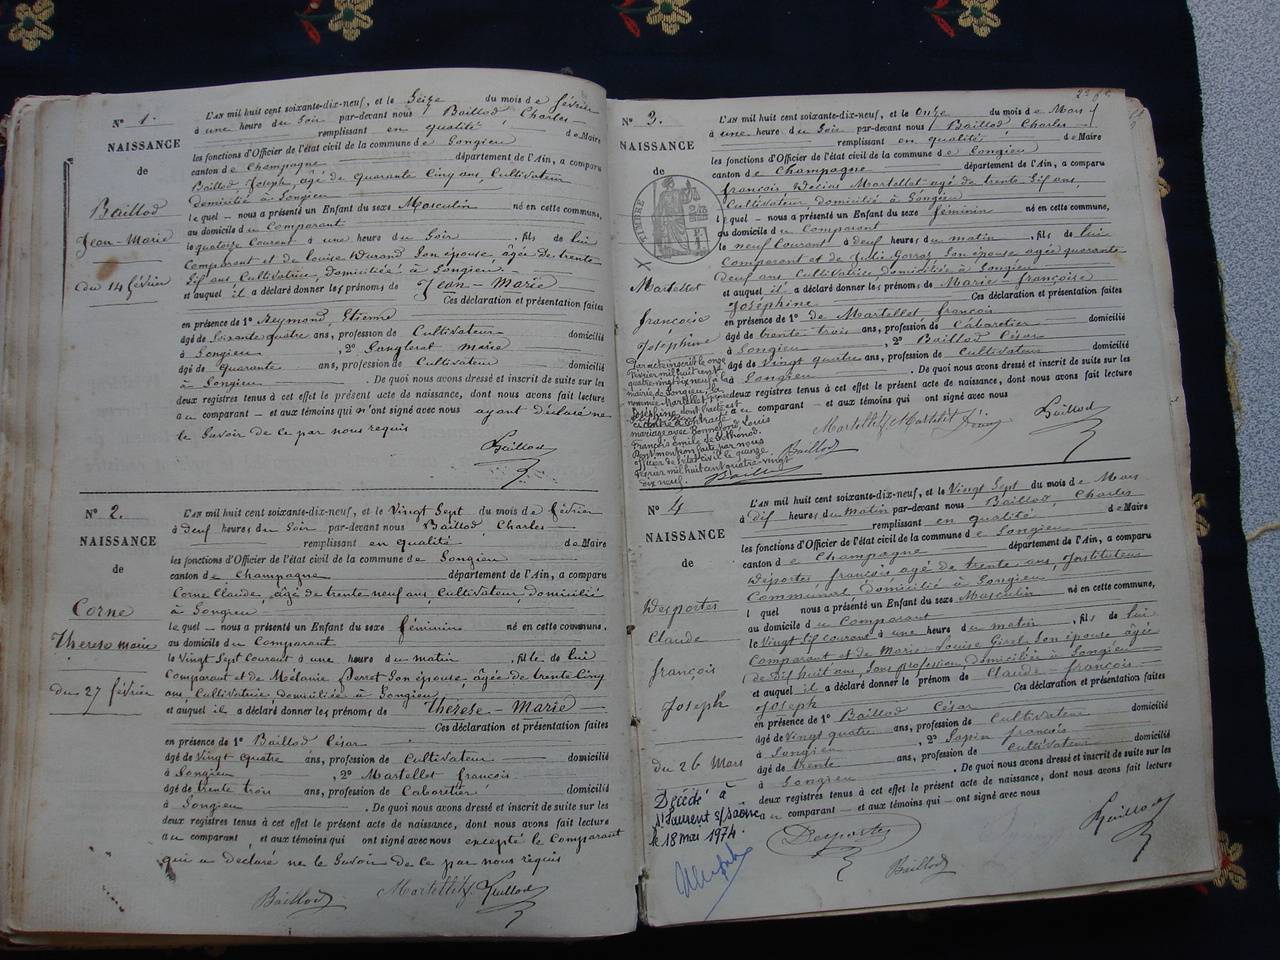 N° 1.
NAISSANCE
de
Baillod
Jean-Marie
du 14 février
L'AN mil huit cent soixante-dix-neuf, et le Seize du mois de février
à une heure du Soir par-devant nous Baillod Charles
remplissant en qualité de Maire
les fonctions d'Officier de l'état civil de la commune de Songieu
canton de Champagne département de l'Ain, a comparu
Baillod Joseph, âgé de quarante Cinq ans, Cultivateur
domicilié à Songieu
le quel – nous a présenté un Enfant du sexe Masculin né en cette commune,
au domicile du Comparant
le quatorze Courant à une heure du Soir, fils de lui
Comparant et de Louise Durand Son épouse, âgée de trente
Six ans, Cultivatrice, domiciliée à Songieu.
et auquel il a déclaré donner les prénoms de Jean-Marie
Ces déclaration et présentation faites
en présence de 1° Reymond, Etienne
âgé de Soixante quatre ans, profession de Cultivateur domicilié
à Songieu, 2° marie
âgé de quarante ans, profession de Cultivateur domicilié
à Songieu. De quoi nous avons dressé et inscrit de suite sur les
deux registres tenus à cet effet le présent acte de naissance, dont nous avons fait lecture
au comparant – et aux témoins qui n'ont signé avec nous ayant déclaré ne
le Savoir de ce par nous requis
Baillod
N° 2.
NAISSANCE
de
Corne
Thérèse marie
du 27 février
L'AN mil huit cent soixante-dix-neuf, et le Vingt Sept du mois de février
à deux heures du Soir par-devant nous Baillod, Charles
remplissant en qualité de Maire
les fonctions d'Officier de l'état civil de la commune de Songieu
canton de Champagne département de l'Ain, a comparu
Corne Claude, âgé de trente neuf ans, Cultivateur, domicilié
à Songieu
le quel – nous a présenté un Enfant du sexe féminin né en cette commune,
au domicile du Comparant
le Vingt Sept Courant à une heure du matin, fille de lui
Comparant et de Mélanie Perret Son épouse, âgée de trente Cinq
ans, Cultivatrice domiciliée à Songieu
et auquel il a déclaré donner les prénoms de Thérèse-Marie
Ces déclaration et présentation faites
en présence de 1° Baillod César
âgé de Vingt quatre ans, profession de Cultivateur domicilié
à Songieu, 2° Martellet françois
âgé de trente trois ans, profession de Cabaretier domicilié
à Songieu. De quoi nous avons dressé et inscrit de suite sur les
deux registres tenus à cet effet le présent acte de naissance, dont nous avons fait lecture
au comparant, et aux témoins qui ont signé avec nous excepté le Comparant
qui a déclaré ne le Savoir de ce par nous requis
Baillod Martellet Baillod
N° 3.
NAISSANCE
de
TIMBRE
Martellet
françoise
Joséphine
L'AN mil huit cent soixante-dix-neuf, et le Onze du mois de Mars
à une heure du Soir par-devant nous Baillod Charles
remplissant en qualité de Maire
les fonctions d'Officier de l'état civil de la commune de Songieu
canton de Champagne département de l'Ain, a comparu
françois Martellet âgé de trente Six ans,
Cultivateur, domicilié à Songieu
l quel – nous a présenté un Enfant du sexe féminin né en cette commune,
au domicile du Comparant
le neuf Courant à deux heures du matin, fils de lui
Comparant et de Julie Son épouse âgée quarante
deux ans Cultivatrice, domiciliée à Songieu
et auquel il a déclaré donner les prénoms de Marie-françoise
Joséphine Ces déclaration et présentation faites
en présence de 1° de Martellet françois
âgé de trente trois ans, profession de Cabaretier domicilié
à Songieu, 2° Baillod César
âgé de Vingt quatre ans, profession de Cultivateur domicilié
à Songieu. De quoi nous avons dressé et inscrit de suite sur les
deux registres tenus à cet effet le présent acte de naissance, dont nous avons fait lecture
au comparant – et aux témoins qui ont signé avec nous
Par acte inscrit le onze
février mil huit cent
quatre vingt dix neuf à la
mairie de Songieu, la
nommée Martellet
Joséphine, dont l'acte est
ci contre a contracté
mariage avec Bonnefond, Louis
François Emile de Béthonod.
officier de l'état civil le quinze
février mil huit cent quatre vingt
dix neuf. Baillod
Martellet Martelet
Baillod Baillod
N° 4
NAISSANCE
de
Desportes
Claude
françois
Joseph
du 26 Mars
L'AN mil huit cent soixante-dix-neuf, et le Vingt Sept du mois de Mars
à dix heures du Matin par-devant nous Baillod, Charles
remplissant en qualité de Maire
les fonctions d'Officier de l'état civil de la commune de Songieu
canton de Champagne département de l'Ain, a comparu
Desportes, françois âgé de trente ans, Instituteur
Communal domicilié à Songieu
l quel nous a présenté un Enfant du sexe Masculin né en cette commune,
au domicile du Comparant
le Vingt Six courant à une heure du matin, fils de lui
Comparant et de Marie-Louise Son épouse âgée
de Dix huit ans, Sans profession, domiciliée à Songieu
et auquel il a déclaré donner les prénom de Claude-françois-
Joseph Ces déclaration et présentation faites
en présence de 1° Baillod César
âgé de Vingt quatre ans, profession de Cultivateur domicilié
à Songieu, 2° françois
âgé de trente ans, profession de Cultivateur domicilié
à Songieu. De quoi nous avons dressé et inscrit de suite sur les
deux registres tenus à cet effet le présent acte de naissance, dont nous avons fait lecture
au comparant – et aux témoins qui – ont signé avec nous
Décédé à
St Laurent s/Saône
le 18 mai 1974.
Desportes Baillod
Baillod